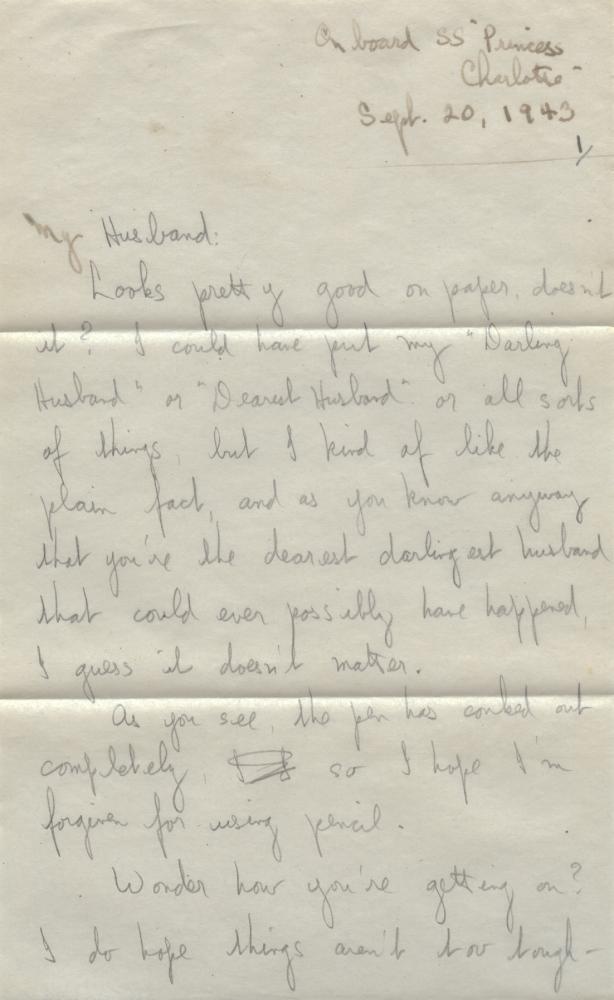 On board SS "Princess
Charlotte"
Sept. 20, 1943
1/
My Husband:
Looks pretty good on paper, doesn't
it? I could have put my "Darling
Husband" or "Dearest Husband" or all sorts
of things, but I kind of like the
plain fact, and as you know anyway
that you're the dearest darlingest husband
that could ever possibly have happened,
I guess it doesn't matter.
As you see, the pen has conked out
completely, so I hope I'm
forgiven for using pencil.
Wonder how you're getting on?
I do hope things aren't too tough-